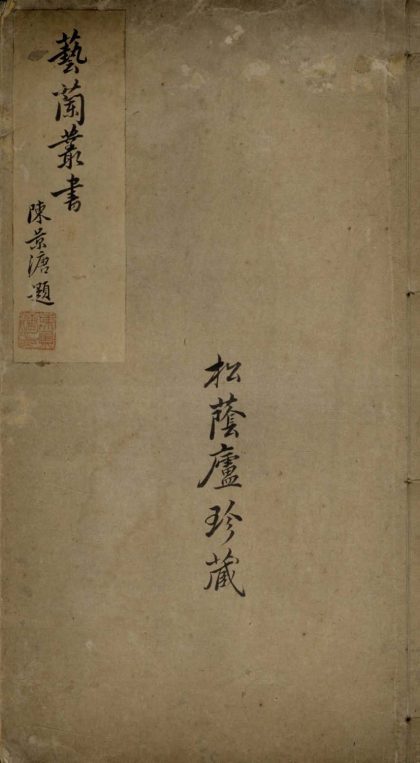 藝蘭叢書
陳景溏題
松蔭廬珍藏